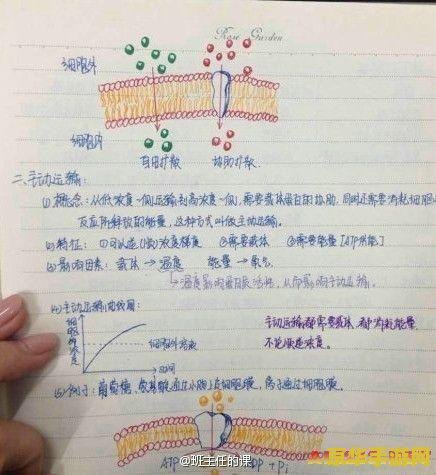 Rose Garden
细胞外
细胞内
自由扩散 协助扩散
二、主动运输:
(1) 概念: 从低浓度一侧运输到高浓度一侧,需要载体蛋白的协助,同时还需要消耗细胞内
反应所释放的能量,这种方式叫做主动运输。
(2) 特征: ①可以逆(低)浓度梯度 ②需要载体 ③需要能量[ATP供能]
(3) 影响因素: 载体 → 温度 能量 → 氧气
↳温度影响蛋白质活性,从而影响主动运输。
(4) 主动运输曲线图:
细胞内浓度
细胞外浓度
时间
主动运输都需要载体,都消耗能量
不一定浓度。
(5) 例子: 葡萄糖、氨基酸通过小肠上皮细胞膜,离子通过细胞膜。
ATP ADP + Pi
@班主任的课